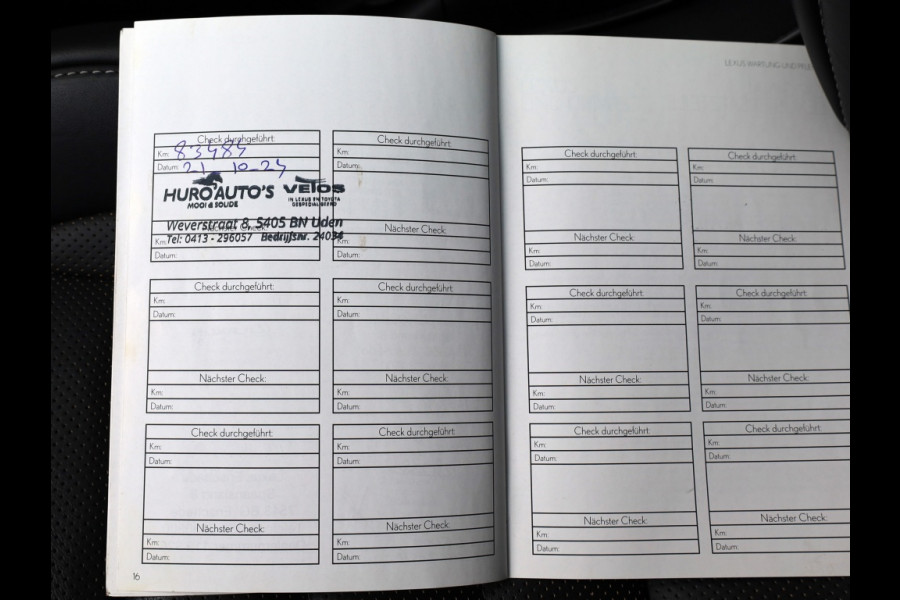 Check durchgeführt:
Km: 83484
Datum: 21-10-24
HURO AUTO'S
MOOI & SOLIDE
VETOS
IN LEXUS EN TOYOTA
GESPECIALISEERD
Weverstraat 8, 5405 BN Uden
Tel: 0413 - 296057 Bedrijfsnr. 24034
Nächster Check:
Km:
Datum:
Check durchgeführt:
Km:
Datum:
Nächster Check:
Km:
Datum:
Check durchgeführt:
Km:
Datum:
Nächster Check:
Km:
Datum:
Check durchgeführt:
Km:
Datum:
Nächster Check:
Km:
Datum:
Check durchgeführt:
Km:
Datum:
Nächster Check:
Km:
Datum:
Check durchgeführt:
Km:
Datum:
Nächster Check:
Km:
Datum:
16
LEXUS WARTUNG UND
Check durchgeführt:
Km:
Datum:
Nächster Check:
Km:
Datum:
Check durchgeführt:
Km:
Datum:
Nächster Check:
Km:
Datum:
Check durchgeführt:
Km:
Datum:
Nächster Check:
Km:
Datum:
Check durchgeführt:
Km:
Datum:
Nächster Check:
Km:
Datum:
Check durchgeführt:
Km:
Datum:
Nächster Check:
Km:
Datum:
Check durchgeführt:
Km:
Datum:
Nächster Check:
Km:
Datum: